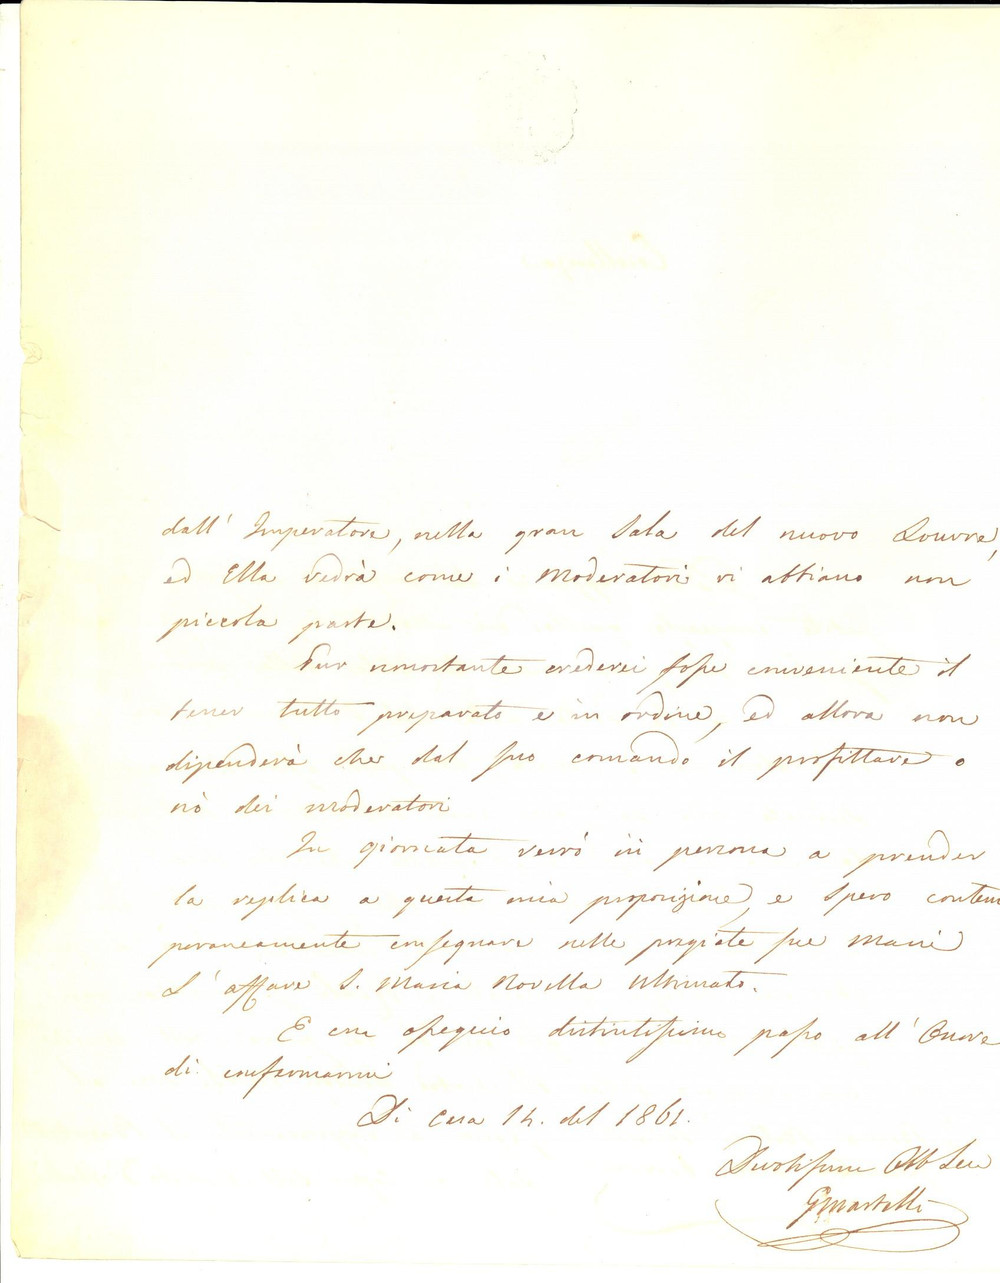 dall' Imperatore, nella gran Sala del nuovo Louvre,
ed Ella vedrà come i Moderatori vi abbiano non
piccola parte.
Pur nonostante crederei fosse conveniente il
tener tutto preparato e in ordine, ed allora non
dipenderà che dal suo comando il profittare o
nò dei moderatori
In giornata verrò in persona a prender
la replica a questa mia proposizione, e spero contem
poraneamente consegnare nelle pregiate sue Mani
L'affare S. Maria Novella ultimato.
E con ossequio distintissimo passo all' Onore
di confermarmi
Di Casa 14. del 1861.
Devotissimo Obb Serv
GMartelli